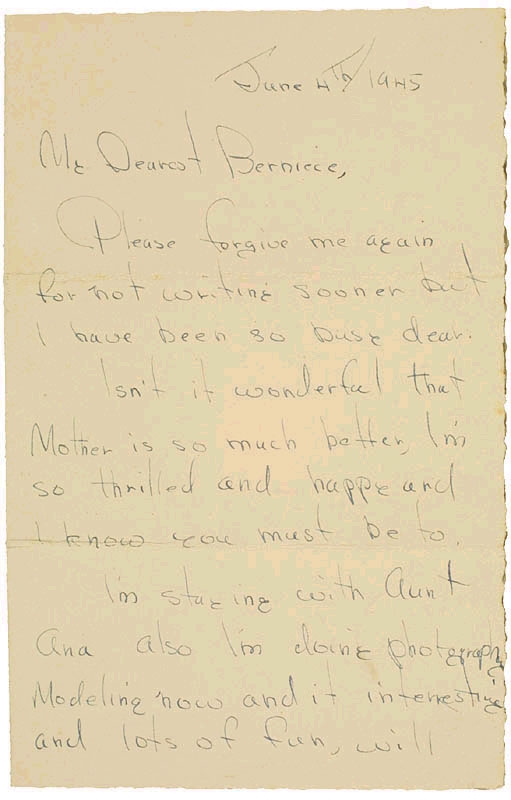 June 4th 1945
My Dearest Berniece,
Please forgive me again
for not writing sooner but
I have been so busy dear.
Isn't it wonderful that
Mother is so much better, I'm
so thrilled and happy and
I know you must be to.
I'm staying with Aunt
Ana also I'm doing photography
Modeling now and it interesting
and lots of fun, will